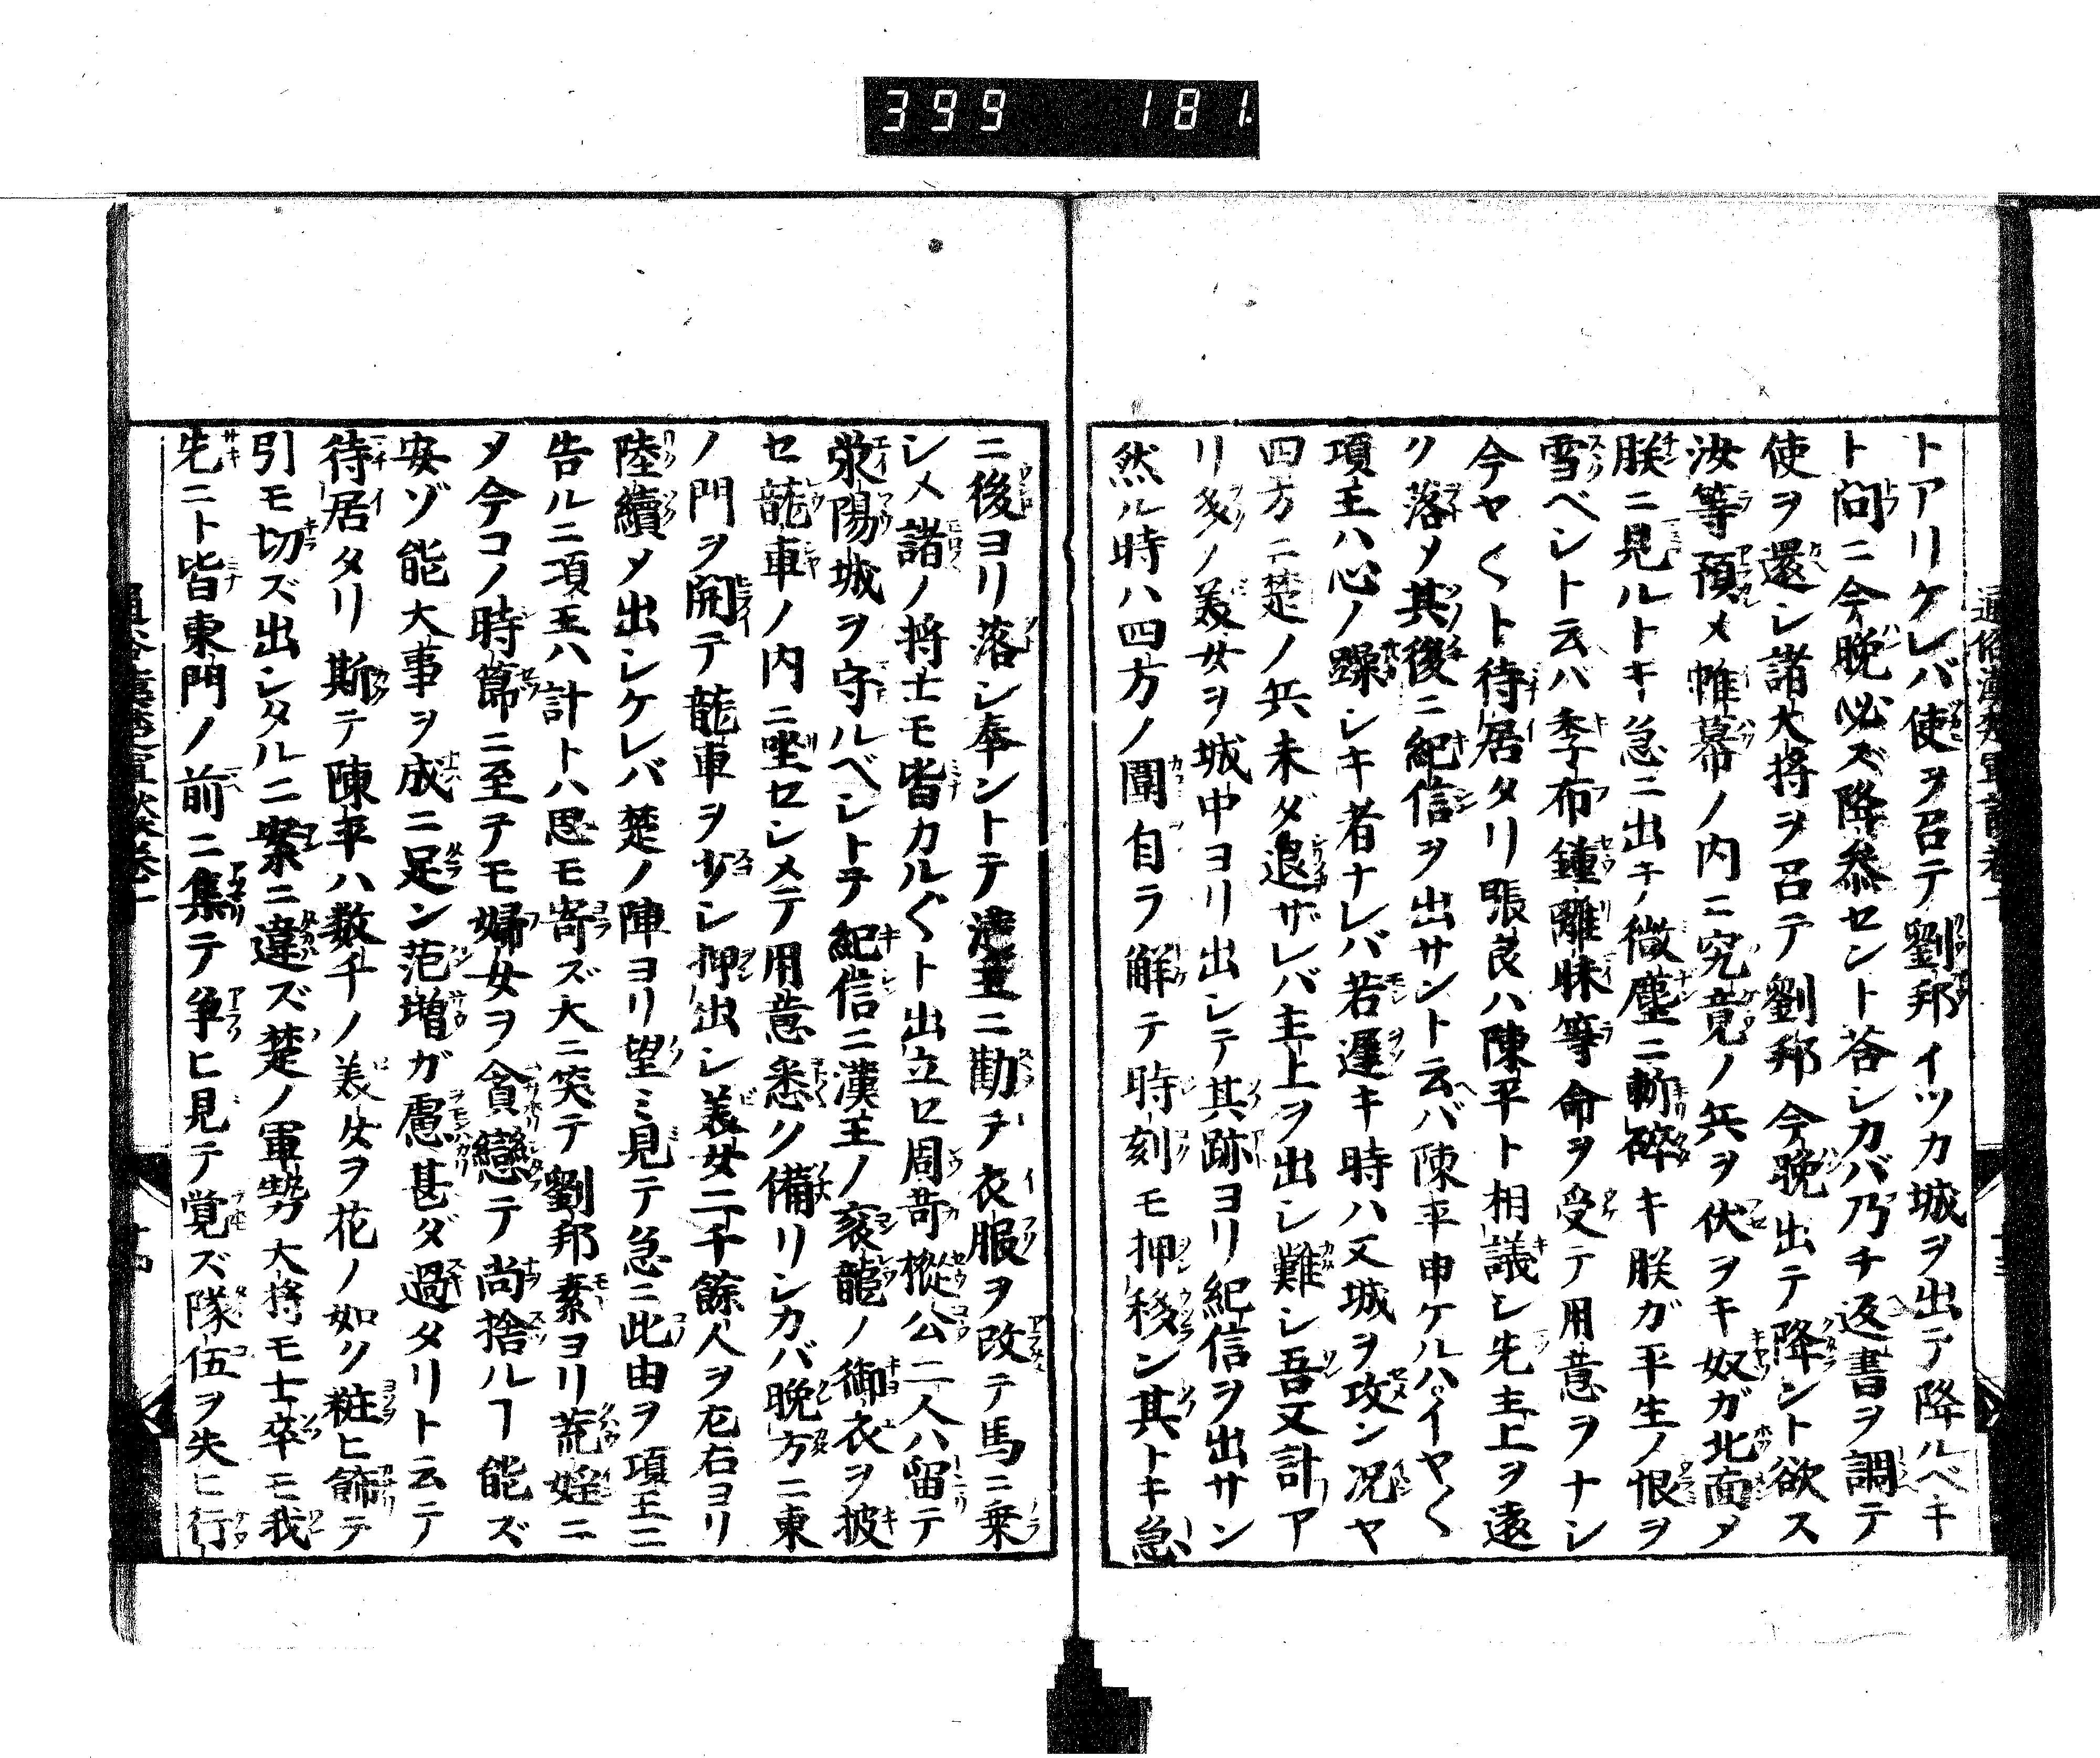 399 181
通俗漢楚軍談巻十
トアリケレバ使ヲ召テ劉邦イツカ城ヲ出テ降ルベキ
ト問ニ今晩必ズ降参セント荅シカバ乃チ返書ヲ調テ
使ヲ還シ諸大将ヲ召テ劉邦今晩出テ降ント欲ス
汝等預メ帷幕ノ内ニ究竟ノ兵ヲ伏ヲキ奴ガ北面〆
朕ニ見ルトキ急ニ出チ微塵ニ斬碎キ朕ガ平生ノ恨ヲ
雪ベント云ハ季布鍾離昧等命ヲ受テ用意ヲナシ
今ヤ〱ト待居タリ張良ハ陳平ト相議シ先主上ヲ遠
ク落〆其後ニ紀信ヲ出サント云バ陳平申ケルハイヤ〱
項王ハ心ノ躁シキ者ナレバ若遲キ時ハ又城ヲ攻ン况ヤ
四方ニ楚ノ兵未ダ退ザレバ主上ヲ出シ難シ吾又計ア
リ多ノ美女ヲ城中ヨリ出シテ其跡ヨリ紀信ヲ出サン
然ル時ハ四方ノ圍自ラ解テ時刻モ押移ン其トキ急
ニ後ヨリ落シ奉ントテ漢王ニ勸チ衣服ヲ改テ馬ニ乗
シメ諸ノ将士モ皆カル〲ト出立セ周苛樅公二人ハ留テ
滎陽城ヲ守ルベシトテ紀信ニ漢王ノ袞龍ノ御衣ヲ披
セ龍車ノ内ニ坐セシメテ用意悉ク備リシカバ晩方ニ東
ノ門ヲ開テ龍車ヲ少シ押出シ美女二千餘人ヲ左右ヨリ
陸續〆出シケレバ楚ノ陣ヨリ望ミ見テ急ニ此由ヲ項王ニ
告ルニ項王ハ計トハ思モ寄ズ大ニ笑テ劉邦素ヨリ荒婬ニ
〆今コノ時節ニ至テモ婦女ヲ貪戀テ尚捨ルヿ能ズ
安ゾ能大事ヲ成ニ足ン范増ガ慮甚ダ過タリト云テ
待居タリ斯テ陳平ハ数千ノ美女ヲ花ノ如ク粧ヒ餙テ
引モ切ズ出シタルニ案ニ違ズ楚ノ軍勢大将モ士卒モ我
先ニト皆東門ノ前ニ集テ争ヒ見テ覚ズ隊伍ヲ失ヒ行